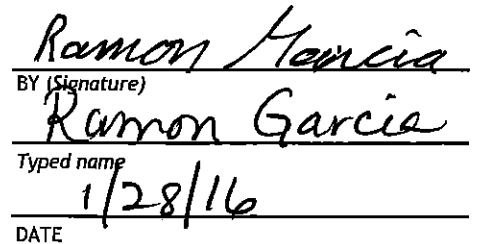 Ramon Garcia
BY (Signature)
Ramon Garcia
Typed name
1/28/16
DATE